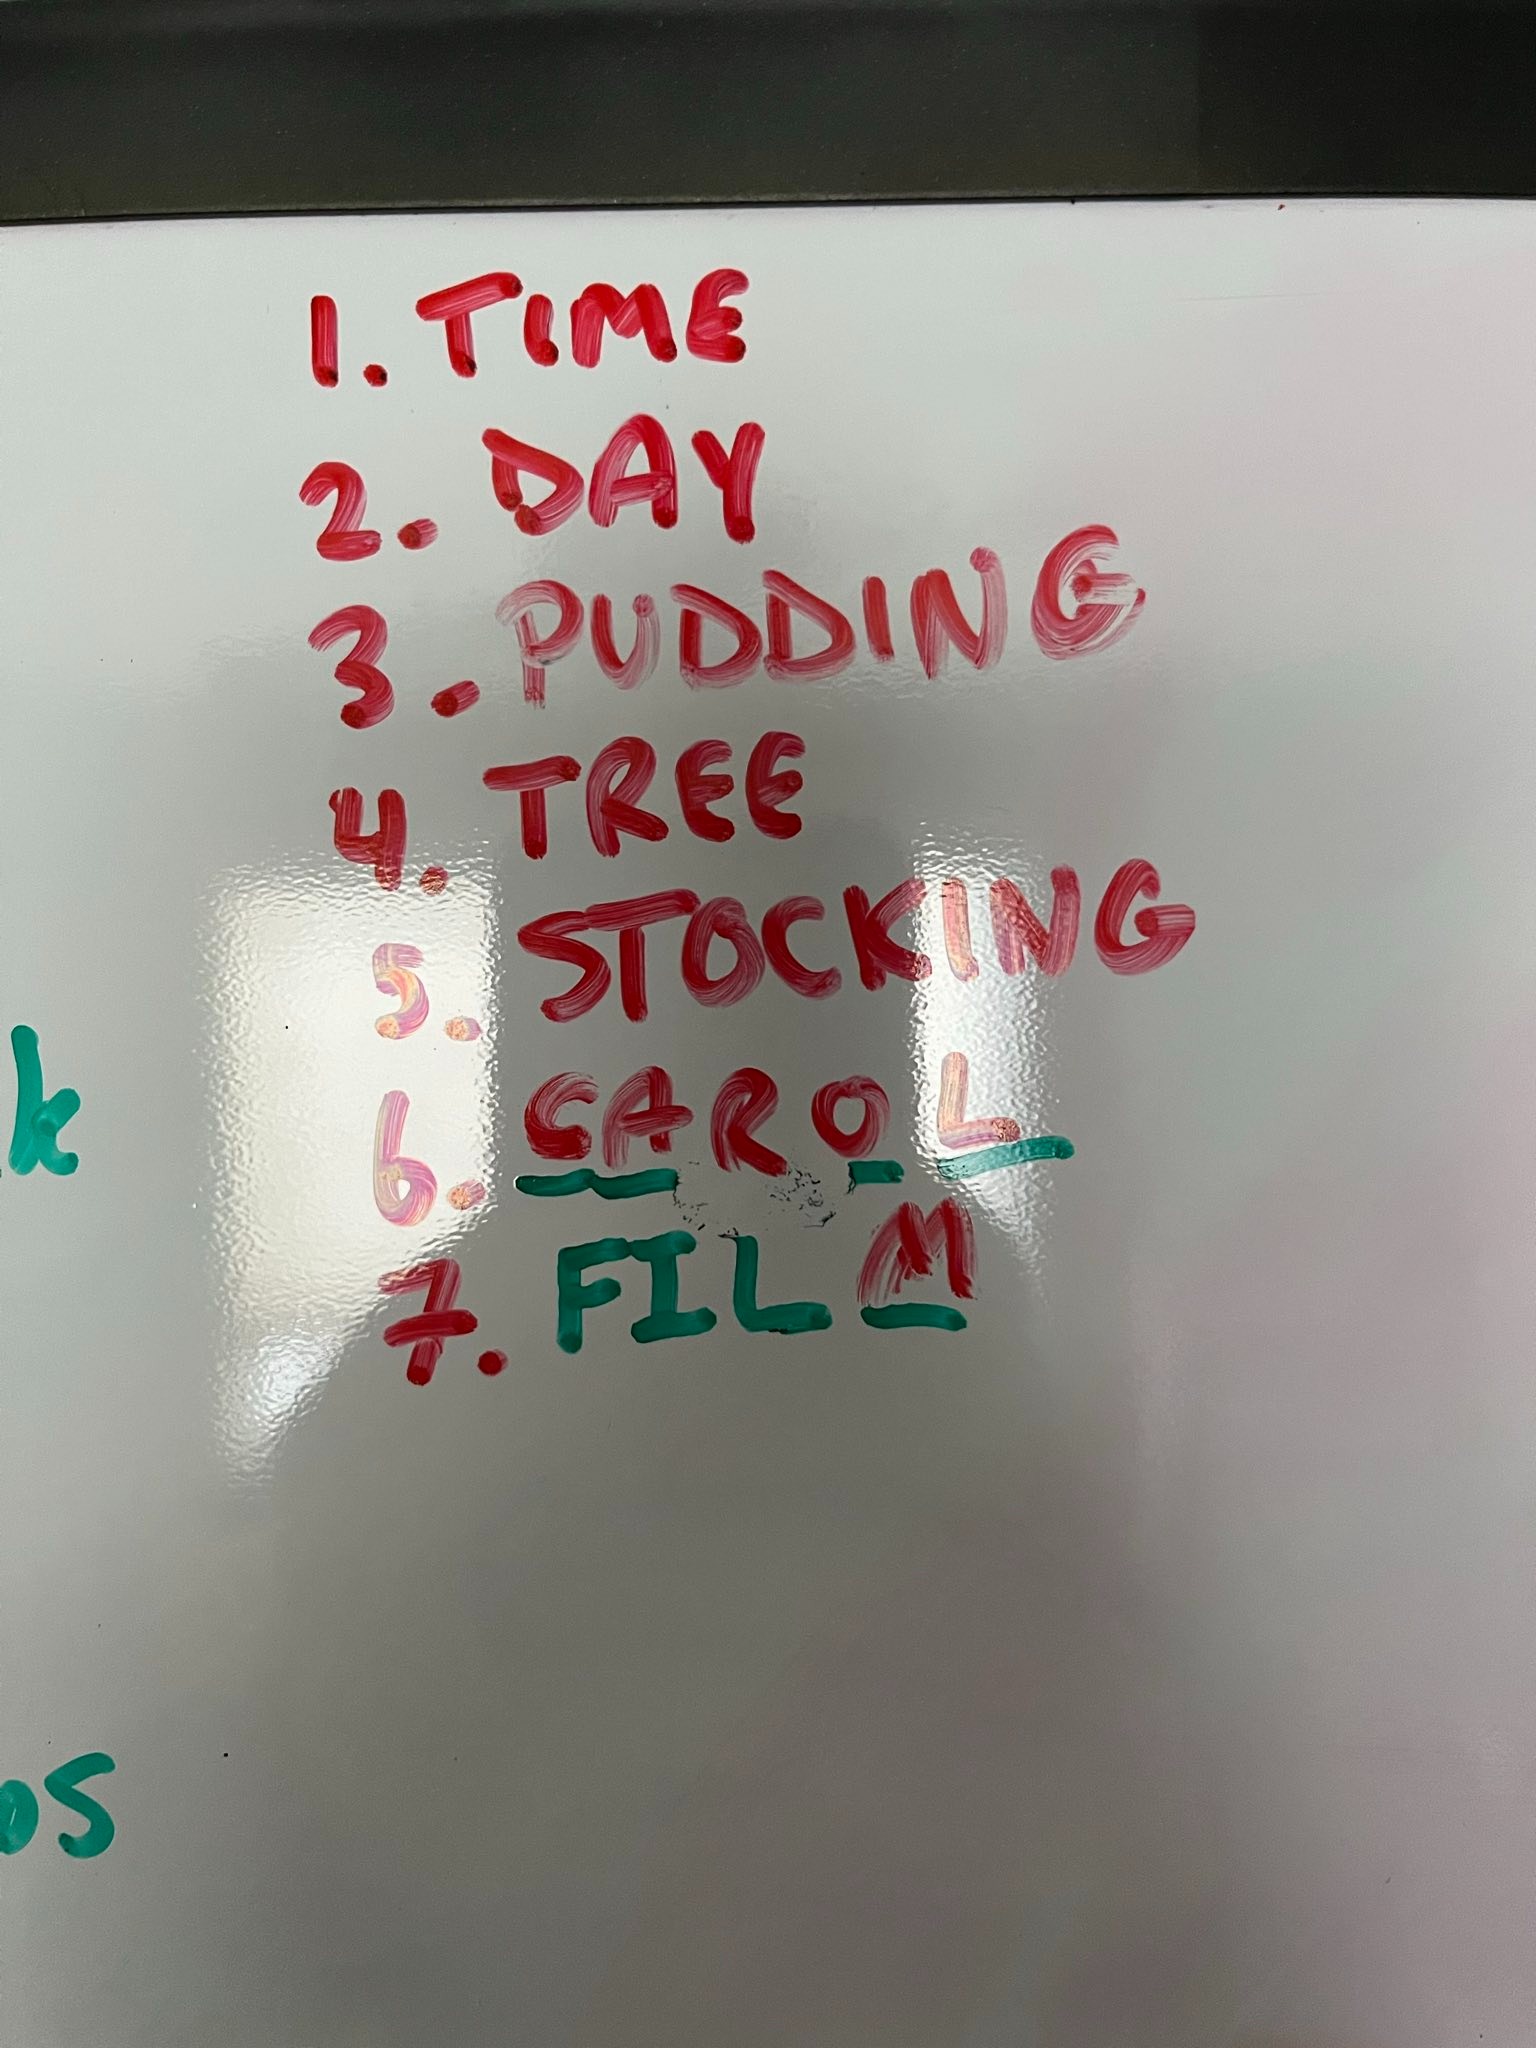 1. TIME
2. DAY
3. PUDDING
4. TREE
5. STOCKING
6. CAROL
7. FILM
k
os